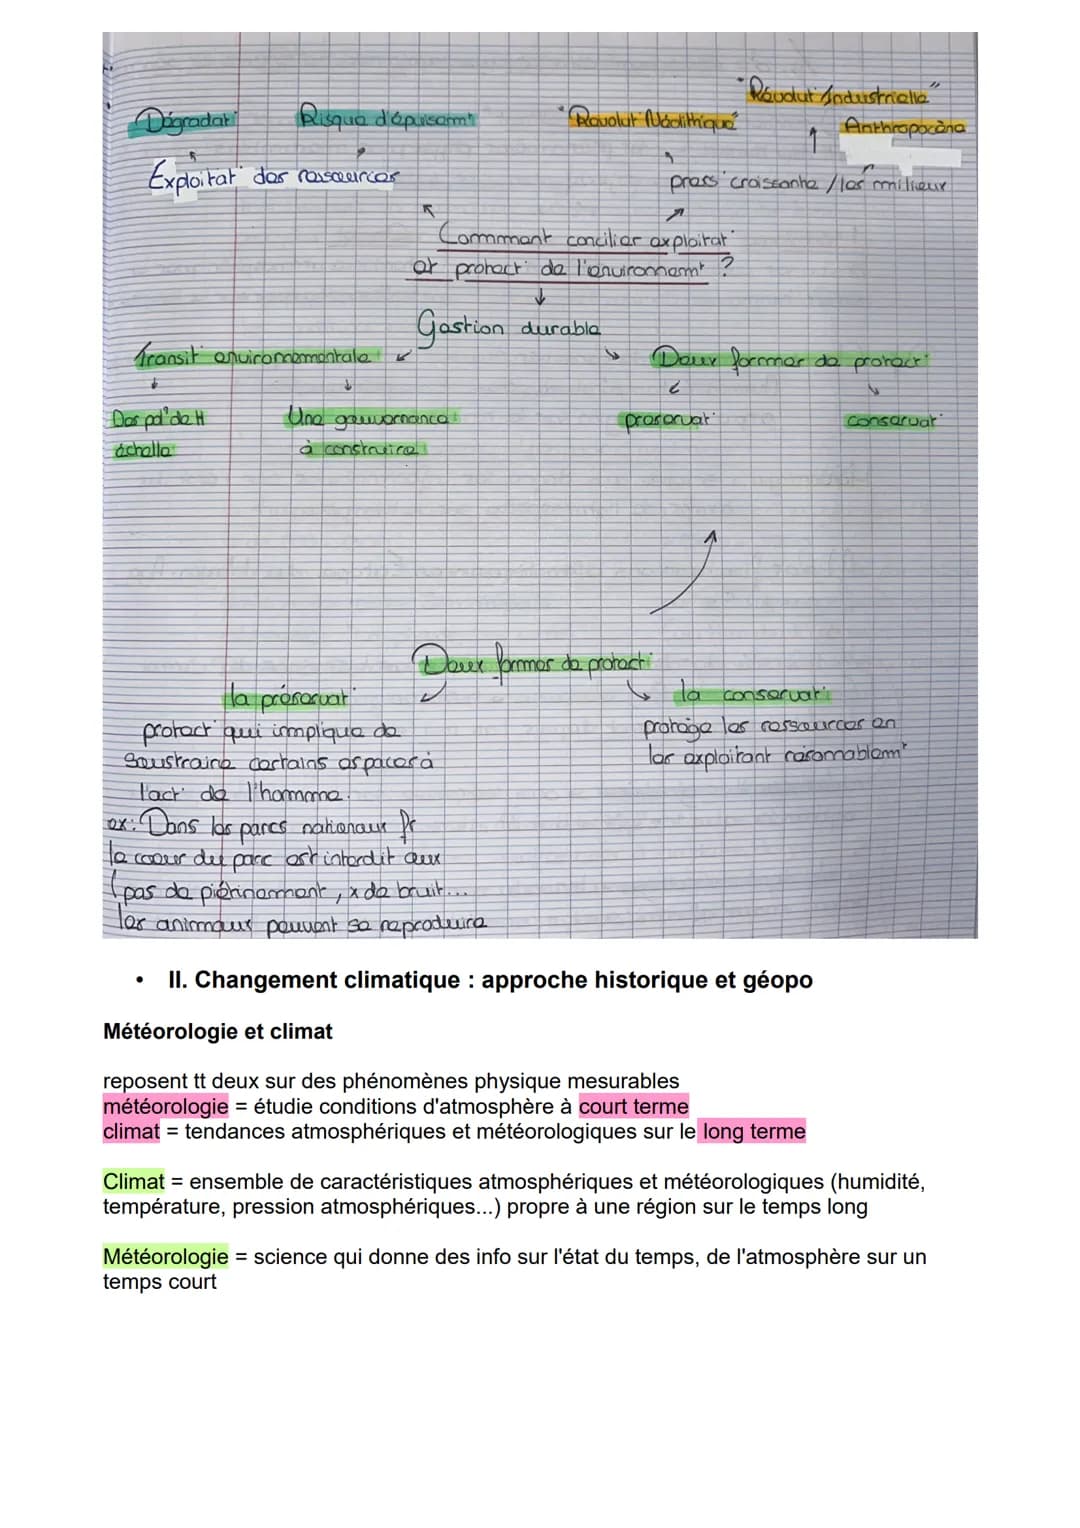 "Révolut° Industrielle"
Dégradat°
Risque d'épuisemt
"Révolut° Néolithique"
Anthropocène
Exploitat° des ressources
press° croissante / les milieux
Comment concilier exploitat°
et protect° de l'environnemt ?
Gestion durable
Transit° environnementale
Deux formes de protect°
Des pol° de ≠
échelle
Une gouvernance
à construire
préservat°
conservat°
Deux formes de protect°
la préservat°
la conservat°
protect° qui implique de
soustraire certains espaces à
l'act° de l'homme.
protège les ressources en
les exploitant raisonnablemt
ex: Dans les parcs nationaux fr
le coeur du parc est interdit aux
(pas de piétinement, x de bruit...
les animaux peuvent se reproduire
• II. Changement climatique : approche historique et géopo
Météorologie et climat
reposent tt deux sur des phénomènes physique mesurables
météorologie = étudie conditions d'atmosphère à court terme
climat = tendances atmosphériques et météorologiques sur le long terme
Climat = ensemble de caractéristiques atmosphériques et météorologiques (humidité,
température, pression atmosphériques...) propre à une région sur le temps long
Météorologie = science qui donne des info sur l'état du temps, de l'atmosphère sur un
temps court